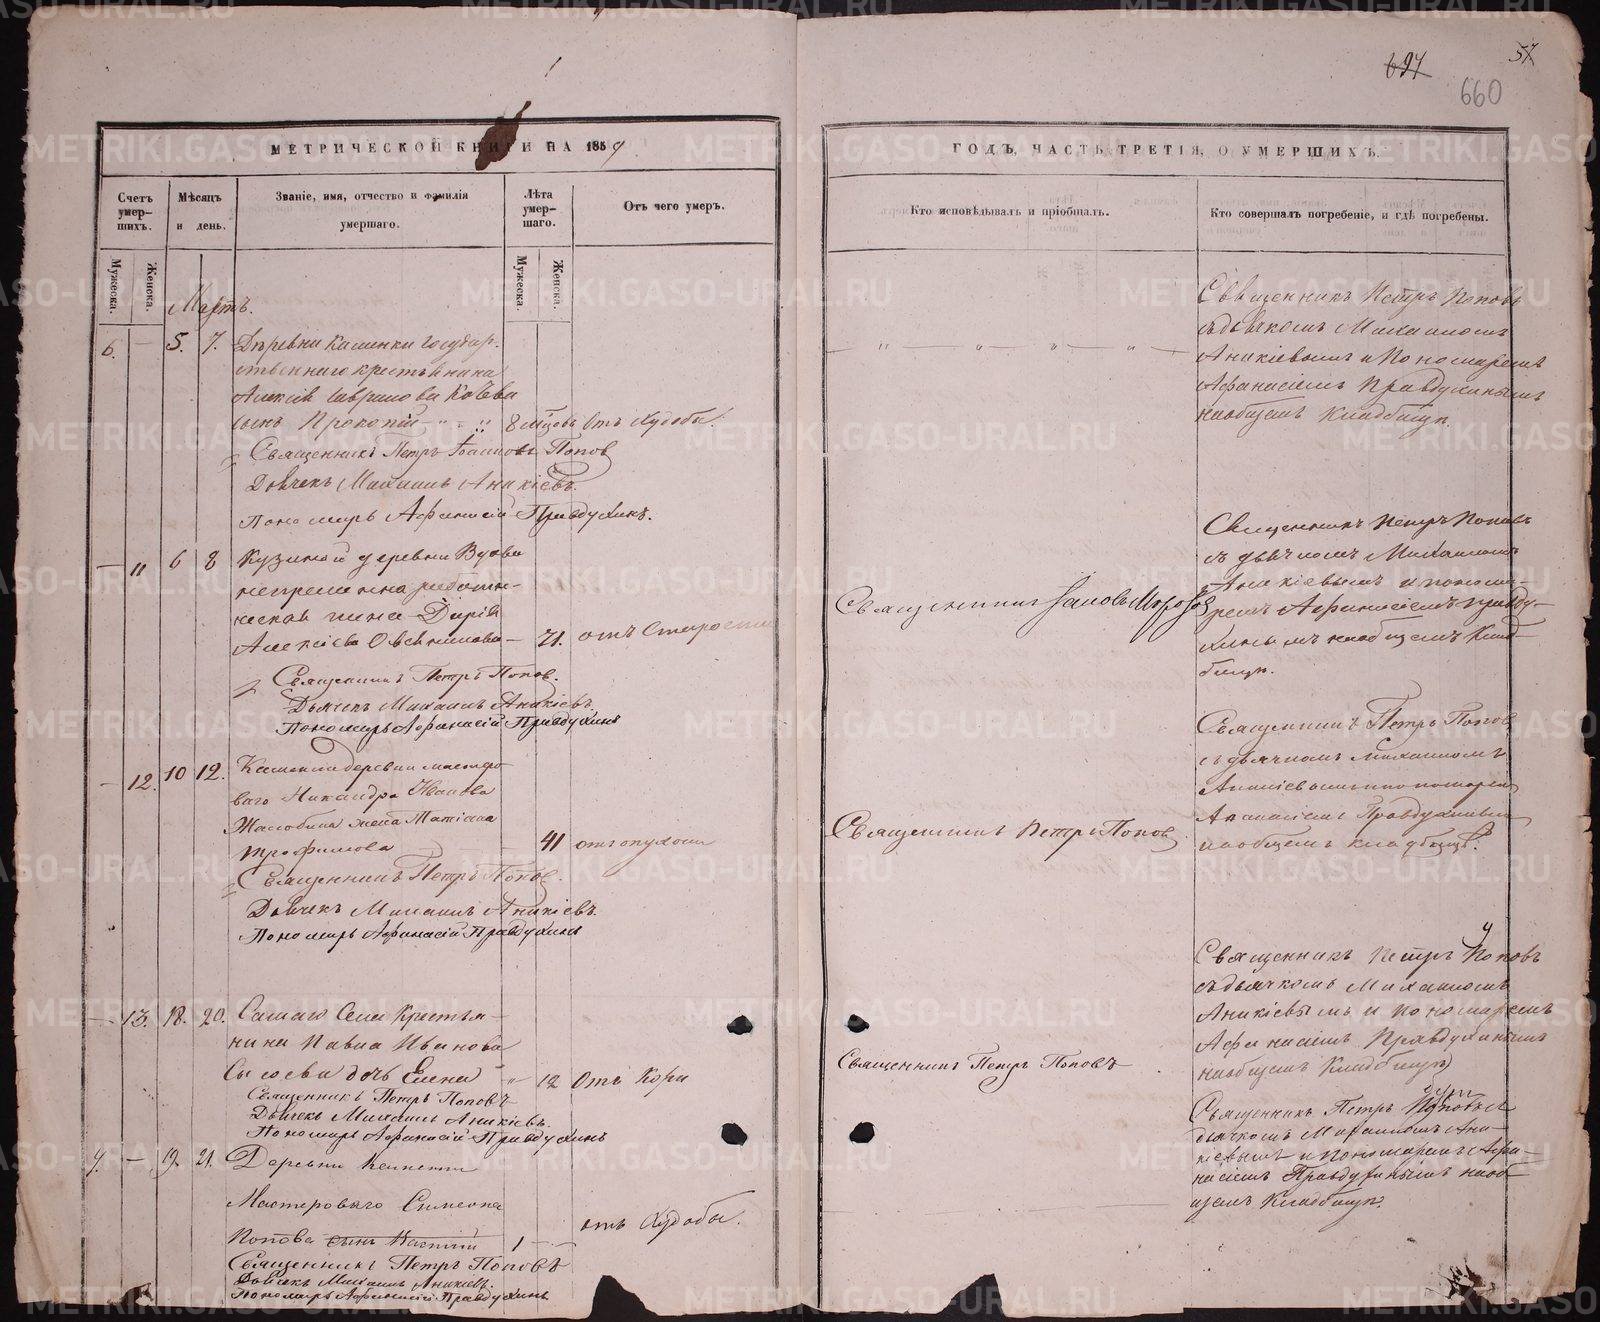 697
57
660
МЕТРИЧЕСКОЙ КНИГИ НА 1859
Счетъ умер-шихъ.
Мѣсяцъ и день.
Званіе, имя, отчество и фамилія умершаго.
Лѣта умер-шаго.
Отъ чего умеръ.
Мужеска.
Женска.
Мужеска.
Женска.
Мартъ.
6. — 5. 7. Деревни Каменки государ-
ственнаго крестьянина
Алексѣя
сынъ Прокопій 8 мѣсяцовъ отъ Худобы.
Священникъ Петръ Попов
Дьячекъ Михаилъ Аникіевъ.
Пономарь Афанасій Правдухинъ.
— 11 6 8 Кузиной деревни Вдова
непремѣннаго работни-
Дарія
Алексѣева Овсянникова — 71. отъ Старости
Священникъ Петръ Попов.
Дьячекъ Михаилъ Аникіевъ.
Пономарь Афанасій Правдухинъ
— 12. 10 12. Каменки деревни мастеро-
ваго Никандра Иванова
жена Татіана
Трофимова 41 отъ опухоли
Священникъ Петръ Попов.
Дьячекъ Михаилъ Аникіевъ.
Пономарь Афанасій Правдухинъ
— 13. 18. 20. Самаго Села Крестья-
нина Павла Иванова
Сысоева дочь Елена " 12 Отъ Кори
Священникъ Петръ Поповъ
Дьячекъ Михаилъ Аникіевъ.
Пономарь Афанасій Правдухинъ
7. — 19. 21. Деревни
Мастероваго Симеона
Попова сынъ 1 — отъ Худобы.
Священникъ Петръ Поповъ
Дьячекъ Михаилъ Аникіевъ.
Пономарь Афанасій Правдухинъ
ГОДЪ, ЧАСТЬ ТРЕТІЯ, О УМЕРШИХЪ.
Кто исповѣдывалъ и пріобщалъ.
Кто совершалъ погребеніе, и гдѣ погребены.
Священникъ Петръ Поповъ
съ дьячкомъ Михаиломъ
Аникіевымъ и Пономаремъ
Афанасіемъ Правдухинымъ
на общемъ Кладбищѣ.
Священникъ
Священникъ Петръ Поповъ
съ дьячкомъ Михаиломъ
Аникіевымъ и понома-
ремъ Афанасіемъ Правду-
хинымъ на общемъ Клад-
бищѣ.
Священникъ Петръ Попов
Священникъ Петръ Попов
съ дьячкомъ Михаиломъ
Аникіевымъ и пономаремъ
Афанасіемъ Правдухинымъ
на общемъ кладбищѣ.
Священникъ Петръ Поповъ
Священникъ Петръ Поповъ
съ дьячкомъ Михаиломъ
Аникіевымъ и Пономаремъ
Афанасіемъ Правдухинымъ
на общемъ Кладбищѣ
Священникъ Петръ Поповъ
дьячкомъ Михаиломъ Ани-
кіевымъ и Пономаремъ Афа-
насіемъ Правдухинымъ на об-
щемъ Кладбищѣ.
METRIKI.GASO-URAL.RU